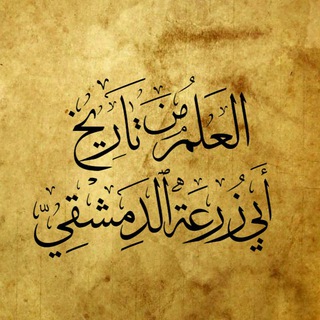 العلم من تاريخ
أبي زرعة الدمشقي